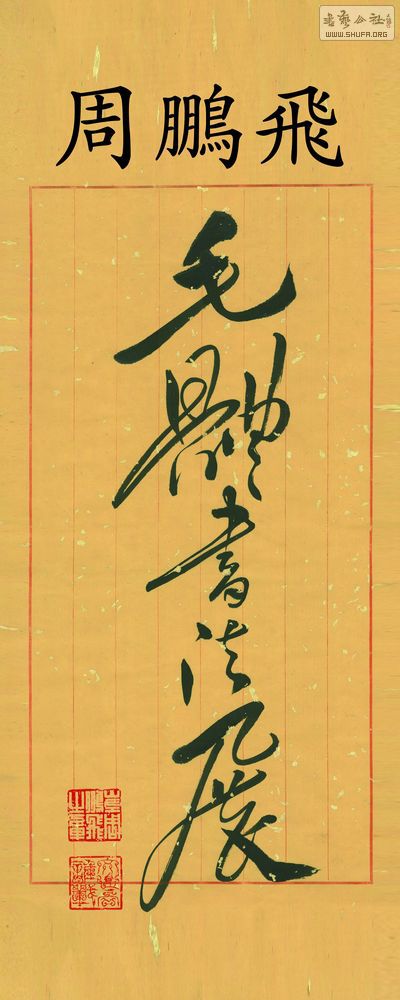 书艺公社
WWW.SHUFA.ORG
周鵬飛
毛體書法展